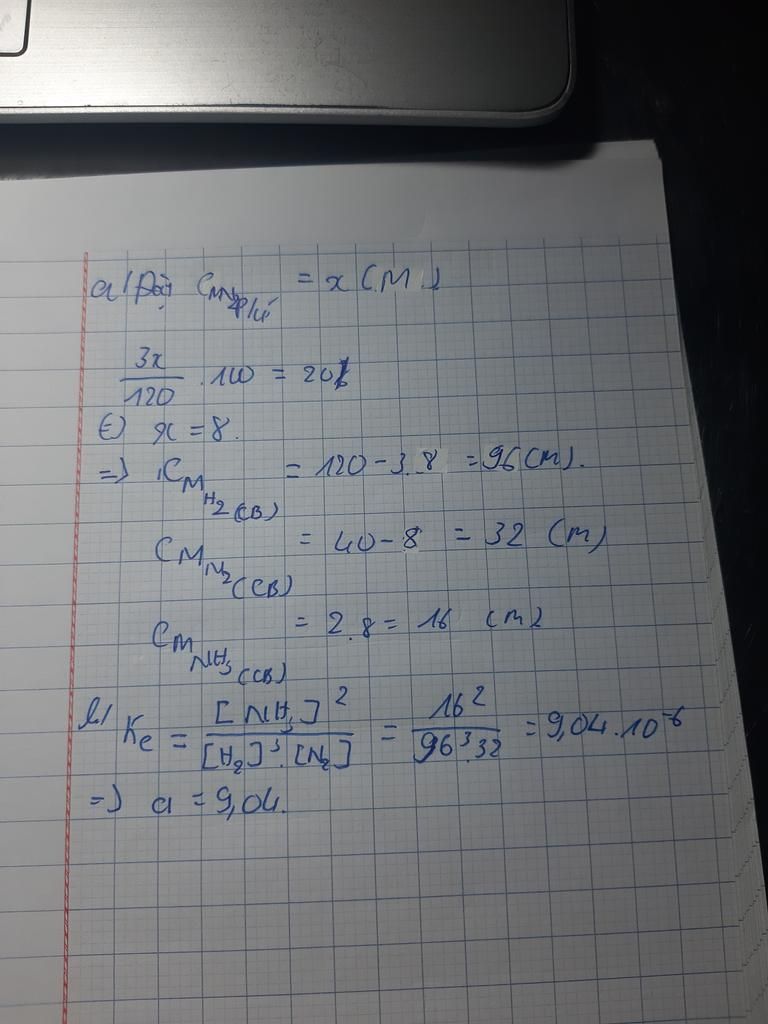 a/ Đặt CM N2 p/ư = x (M)
3x/120 . 100 = 20%
(=) x = 8.
=) CM H2 (CB) = 120 - 3.8 = 96 (M).
CM N2 (CB) = 40 - 8 = 32 (M)
CM NH3 (CB) = 2.8 = 16 (M)
b/ Kc = [NH3]²/[H2]³.[N2] = 16²/96³.32 = 9,04.10⁻⁶
=) a = 9,04.